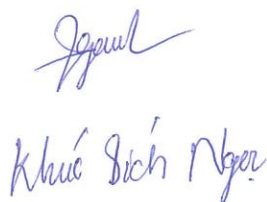 Khuć Bích Ngọc